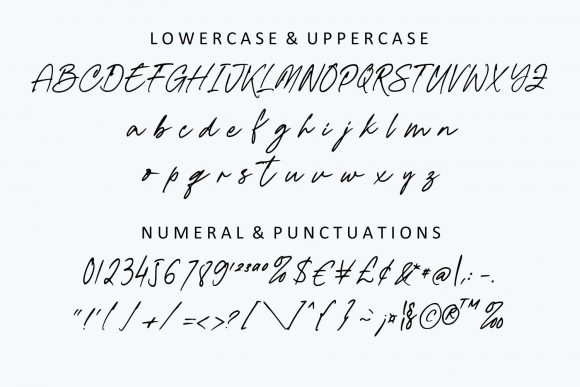 LOWERCASE & UPPERCASE
ABCDEFGHIJKLMNOPQRSTUVWXYZ
a b c d e f g h i j k l m n
o p q r s t u v w x y z
NUMERAL & PUNCTUATIONS
0123456789¹²³ªº%$€¥£¢&**@|,:-.
"!'()+/=<>?[\]^{}~¡¤¦§©®™‰